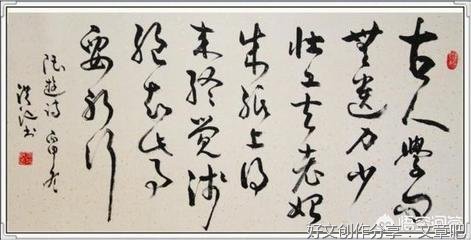 古人學問
無遺力少
壯工夫老始
成紙上得
來終覺淺
絕知此事
要躬行
陸遊詩
書
悟空问答
好文创作分享：文章吧